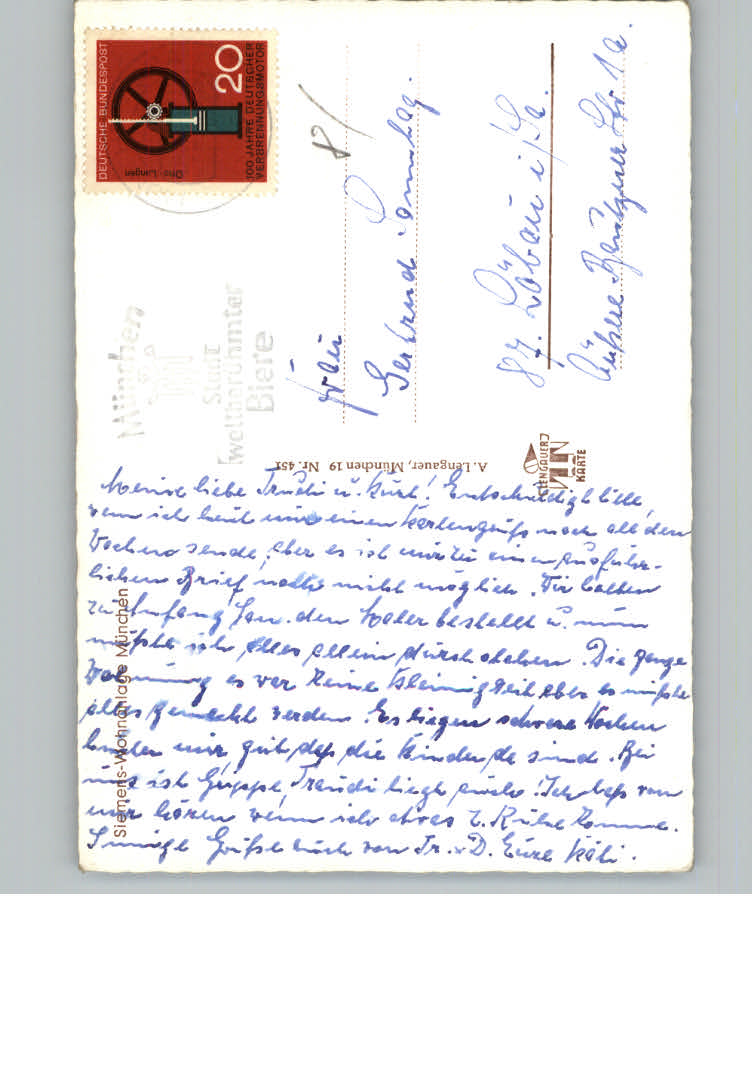 DEUTSCHE BUNDESPOST
20
100 JAHRE DEUTSCHER
VERBRENNUNGSMOTOR
Otto - Langen
München
Stadt
weltberühmter
Biere
8/
Frau
Gertrud
87. Löbau i/Sa.
Äußere Bautzner Str 1a.
A. Lengauer, München 19 Nr. 451
LENGAUER
KARTE
Siemens-Wohnanlage München
Meine liebe Trudi u. Kurt! Entschuldigt bitte,
wenn ich heut nur einen Kartengruß nach all den
Wochen sende, aber es ist mir zu einem ausführ-
lichen Brief nicht möglich. Wir hatten
zu Anfang Jan. den Maler bestellt u. nun
mußte ich alles allein durchstehen. Die ganze
Wohnung es war keine Kleinigkeit aber es mußte
alles gemacht werden. Es liegen schwere Wochen
hinter mir, gut, daß die Kinder da sind. Bei
uns ist Grippe, Traudi liegt auch. Ich laß von
mir hören wenn ich etwas z. Ruhe komme.
Innige Grüße Euch von Tr. u. D. Eure Käti.